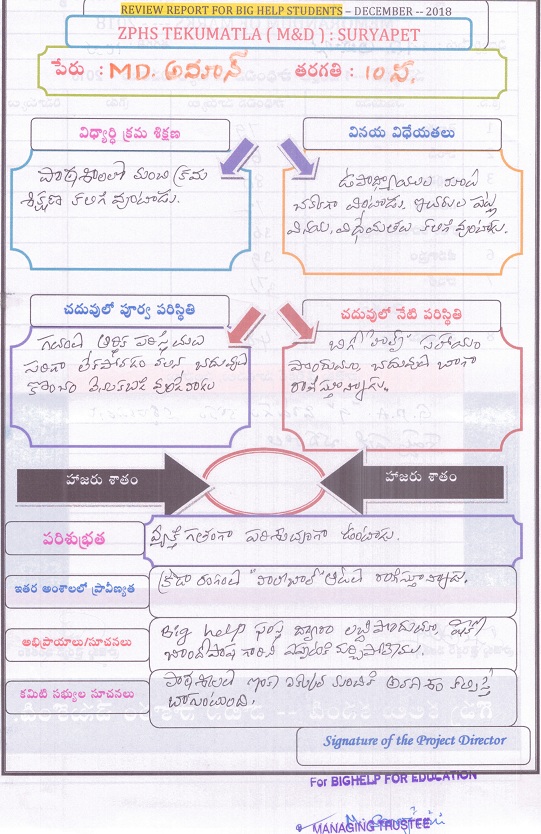 REVIEW REPORT FOR BIG HELP STUDENTS – DECEMBER -- 2018
ZPHS TEKUMATLA ( M&D ) : SURYAPET
పేరు : MD. అమాన్ తరగతి : 10 వ.
విధ్యార్ధి క్రమ శిక్షణ
పాఠశాలలో మంచి క్రమ
శిక్షణ కలిగి వుంటాడు.
వినయ విధేయతలు
ఉపాధ్యాయుల నుండి
వింటాడు. ఇతరుల పట్ల
వినయ, విధేయతలు కలిగి వుంటాడు.
చదువులో పూర్వ పరిస్థితి
గతంలో ఆర్థిక పరిస్థితులు
సరిగా లేకపోవడం వలన చదువులో
కొంచం వెనుకబడి వుండేవాడు
చదువులో నేటి పరిస్థితి
బిగ్ హెల్ప్ సహాయం
పొందుతూ, చదువులో బాగా
రాణిస్తున్నాడు.
హాజరు శాతం
హాజరు శాతం
పరిశుభ్రత
వ్యక్తిగతంగా పరిశుభ్రంగా ఉంటాడు.
ఇతర అంశాలలో ప్రావీణ్యత
క్రీడా రంగంలో "వాలీబాల్" ఆటలో రాణిస్తున్నాడు.
అభిప్రాయాలు/సూచనలు
Big help సంస్థ ద్వారా లబ్ది పొందుతూ,
చాంద్ పాష గారిని ఎప్పటికి మర్చిపోలేము.
కమిటి సభ్యుల సూచనలు
పాఠశాలలో ఇంకా ఎక్కువ మందికి అవకాశం కల్పిస్తే
బాగుంటుంది.
Signature of the Project Director
For BIGHELP FOR EDUCATION
MANAGING TRUSTEE